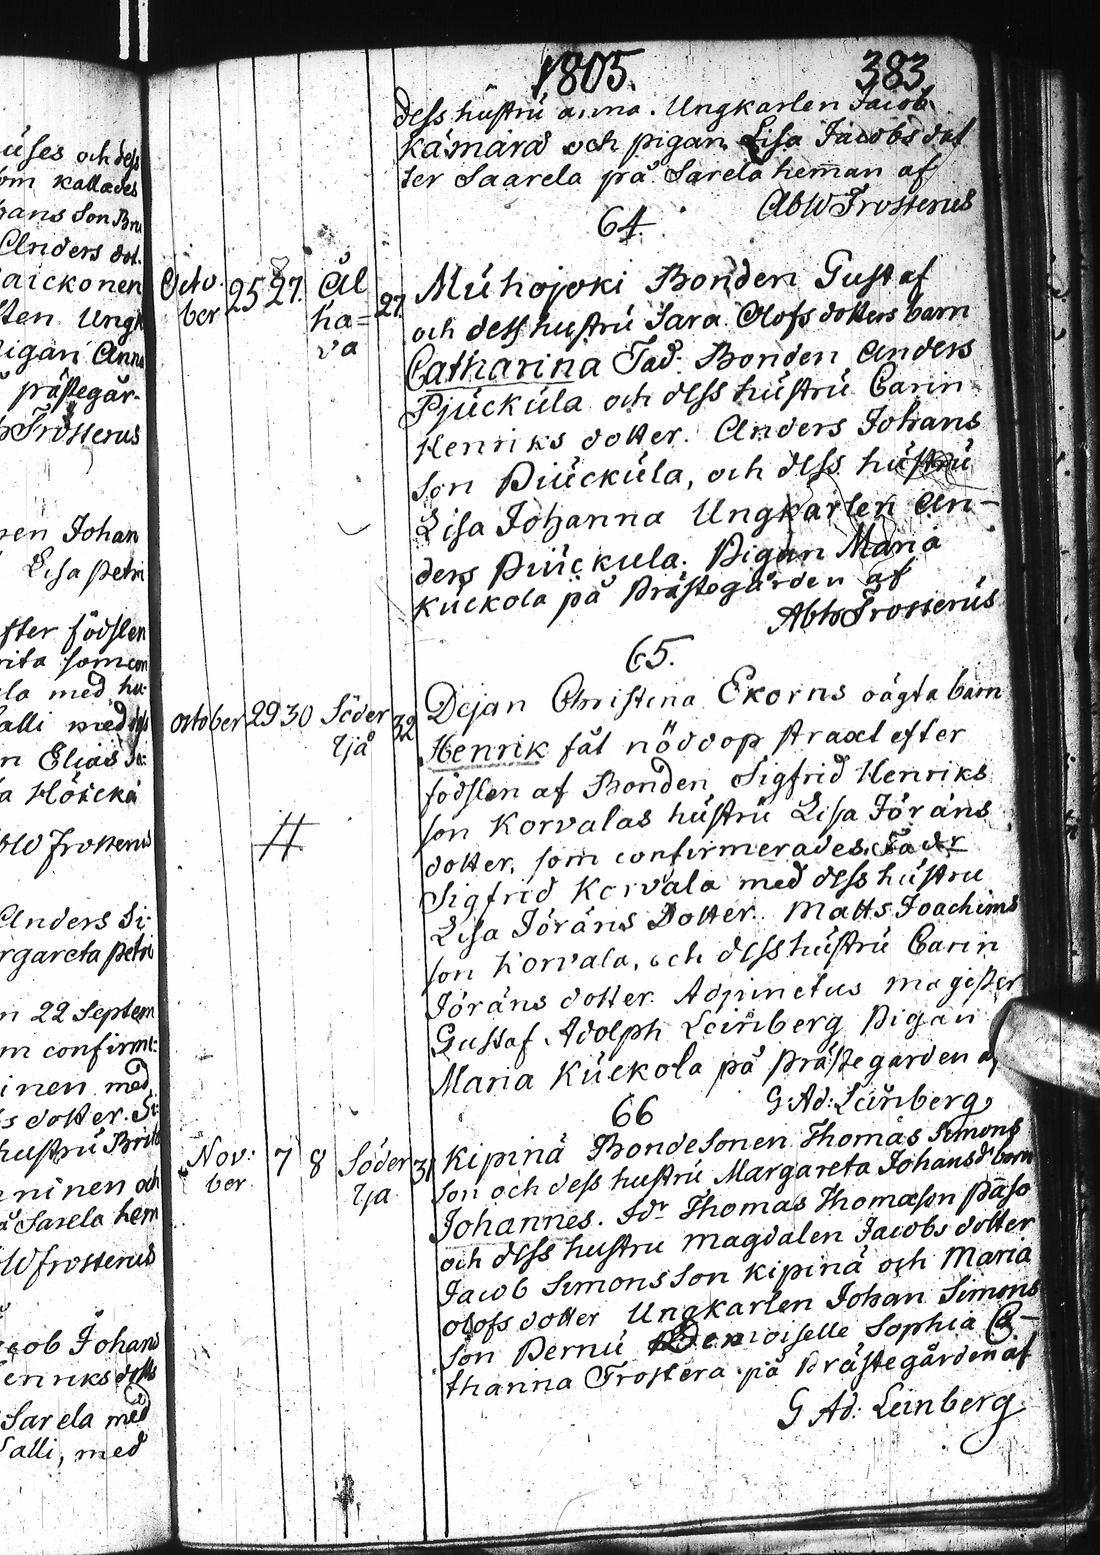 1805. 383
dess hustru anna. Ungkarlen Jacob
Kämärä och pigan Lisa Jacobs dot
ter Saarela på Sarela heman af
AbW Frosterus
64.
Octo-
ber 25 27. Al
ha=
va 27.
Muhojoki Bonden Gustaf
och dess hustru Sara Olofs dotters barn
Catharina Fad: Bonden Anders
Pjuckula och dess hustru Carin
Henriks dotter. Anders Johans
son Piuckula, och dess hustru
Lisa Johanna Ungkarlen An-
ders Piuckula. Pigan Maria
Kuckola på Prästegården af
Frosterus
65.
October 29 30 Söder
ljå 32
Dejan Christina Ekorns oägta barn
Henrik fåt nöddop straxt efter
födslen af Bonden Sigfrid Henriks
son Korvalas hustru Lisa Jöräns
dotter, som confirmerades. Fadr
Sigfrid Korvala med dess hustru
Lisa Jöräns Dotter. Matts Joachims
son Korvala, och dess hustru Carin
Jöräns dotter. Adjunctus magister
Gustaf Adolph Leinberg Pigan
Maria Kuckola på Prästegården af
G Ad: Leinberg
66
Nov:
ber 7 8 Söder
lja 31
Kipinä Bondesonen Thomas Simons
son och dess hustru Margareta Johansd barn
Johannes. Fdr Thomas Thomasson Päso
och dess hustru magdalen Jacobs dotter
Jacob Simons son Kipinä och Maria
olofs dotter Ungkarlen Johan Simons
son Pernu Demoiselle Sophia C-
thanna Frostera på Prästegården af
G Ad: Leinberg
üses och dess
om kallades
hans son Bru
Anders dot.
aickonen
sten Ungk
igan Anna
prästegår-
Frosterus
ren Johan
Lisa Petri
fter födslen
rita som con
la med hu-
alli med dess
n Elias
a Höickä
bW frosterus
Anders Si-
rgareta Petri
n 22 Septem
m confirme-
inen med
s dotter. Si-
hustru Brita
eninen och
å Sarela hem
W frosterus
acob Johans
enriks dotts
Sarela med
alli, med